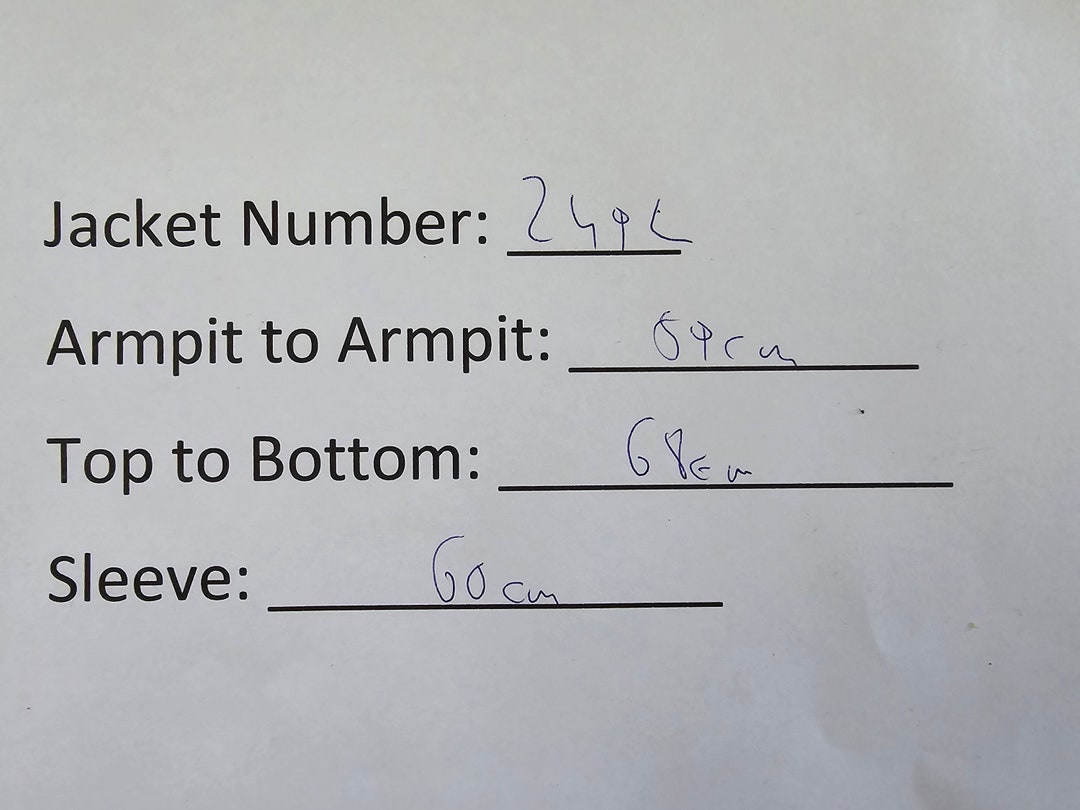 Jacket Number:
Armpit to Armpit:
Top to Bottom: 68cm
Sleeve: 60cm